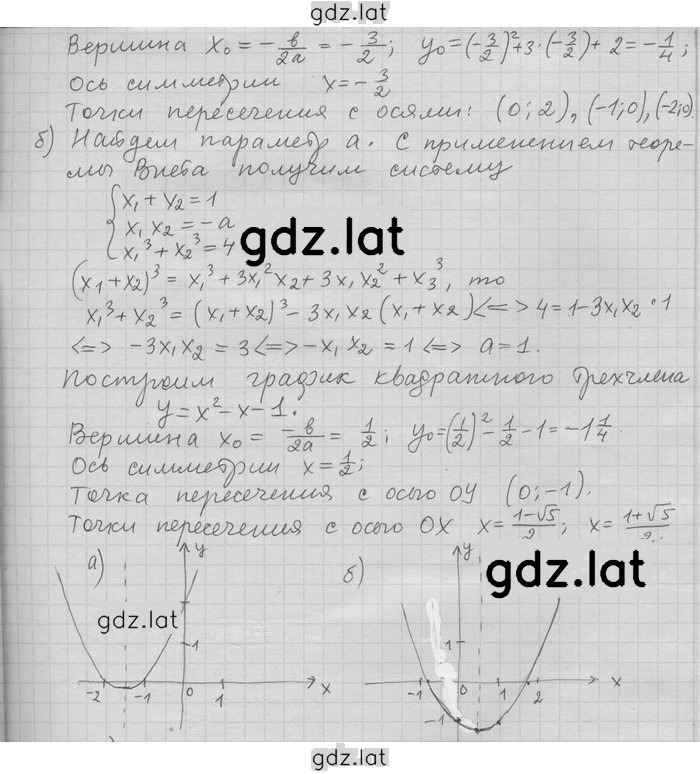 gdz.lat
Вершина x₀ = -b/2a = -3/2; y₀ = (-3/2)² + 3·(-3/2) + 2 = -1/4;
Ось симметрии x = -3/2
Точки пересечения с осями: (0; 2), (-1; 0), (-2; 0).
б) Найдем параметр a. С применением теоре-
мы Виета получим систему
{ x₁ + x₂ = 1
x₁ x₂ = -a
x₁³ + x₂³ = 4
gdz.lat
(x₁ + x₂)³ = x₁³ + 3x₁²x₂ + 3x₁x₂² + x₃³, то
x₁³ + x₂³ = (x₁ + x₂)³ - 3x₁x₂(x₁ + x₂) <=> 4 = 1 - 3x₁x₂ · 1
<=> -3x₁x₂ = 3 <=> -x₁x₂ = 1 <=> a = 1.
Построим график квадратного трехчлена
y = x² - x - 1.
Вершина x₀ = -b/2a = 1/2; y₀ = (1/2)² - 1/2 - 1 = -1 1/4.
Ось симметрии x = 1/2;
Точка пересечения с осью OY (0; -1).
Точки пересечения с осью OX x = (1-√5)/2; x = (1+√5)/2.
а) y
1
-2 -1 0 1 x
gdz.lat
б) y
1
-1 0 1 2 x
-1
gdz.lat
gdz.lat